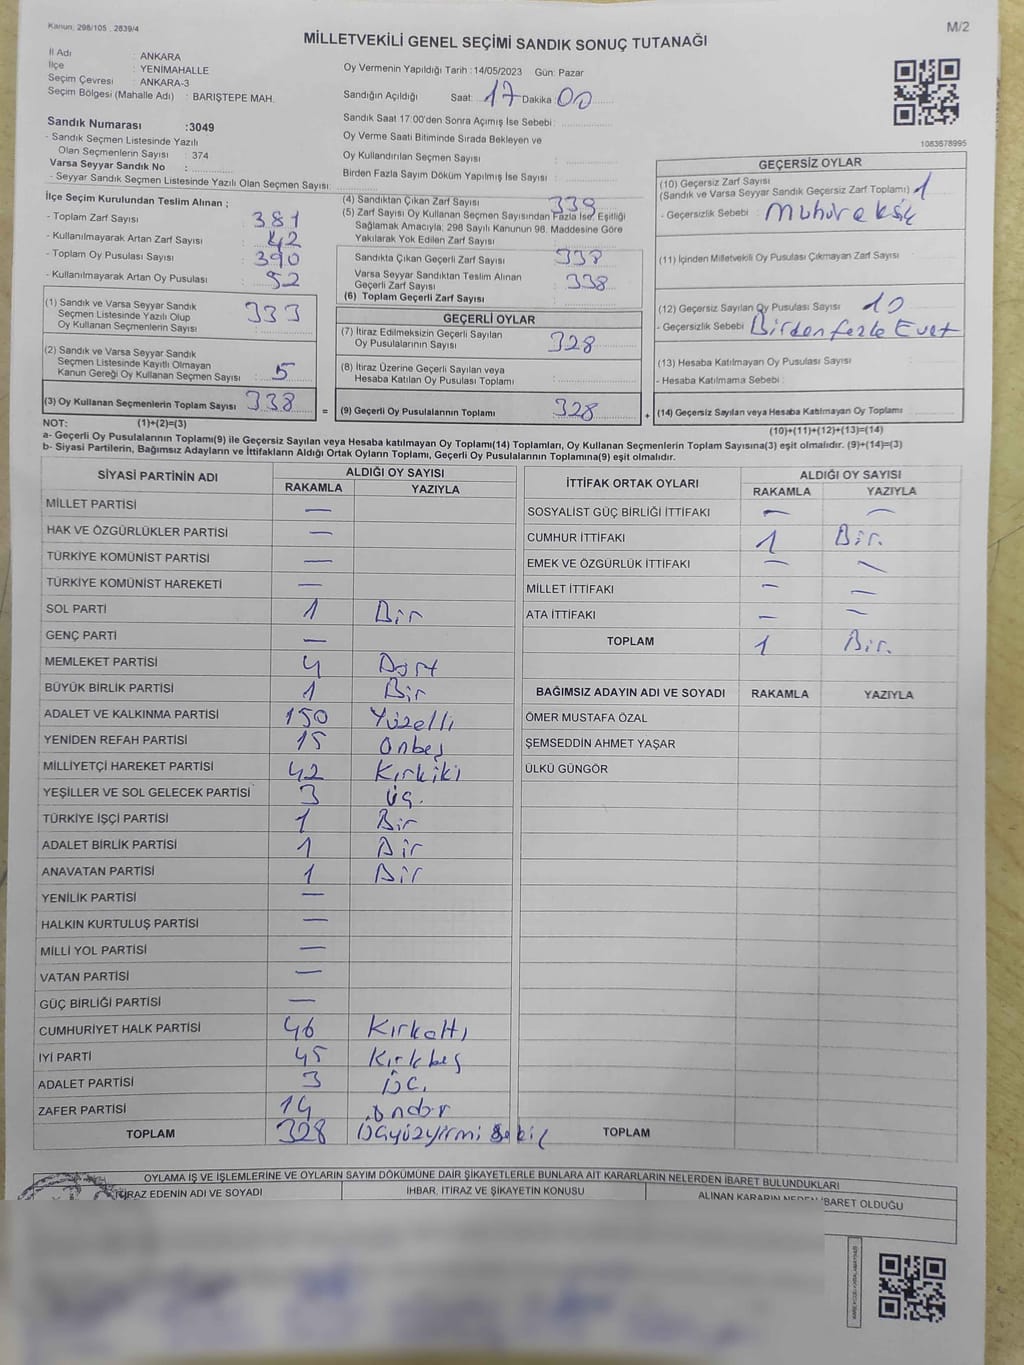 Kanun; 298/105 , 2839/4
M/2
MİLLETVEKİLİ GENEL SEÇİMİ SANDIK SONUÇ TUTANAĞI
İl Adı : ANKARA
İlçe : YENİMAHALLE
Seçim Çevresi : ANKARA-3
Seçim Bölgesi (Mahalle Adı) : BARIŞTEPE MAH.
Sandık Numarası :3049
- Sandık Seçmen Listesinde Yazılı
Olan Seçmenlerin Sayısı : 374
Varsa Seyyar Sandık No :
- Seyyar Sandık Seçmen Listesinde Yazılı Olan Seçmen Sayısı:
Oy Vermenin Yapıldığı Tarih :14/05/2023 Gün: Pazar
Sandığın Açıldığı Saat: 17 Dakika 00
Sandık Saat 17:00'den Sonra Açılmış İse Sebebi :
Oy Verme Saati Bitiminde Sırada Bekleyen ve
Oy Kullandırılan Seçmen Sayısı :
Birden Fazla Sayım Döküm Yapılmış İse Sayısı :
1083678995
İlçe Seçim Kurulundan Teslim Alınan ;
- Toplam Zarf Sayısı : 381
- Kullanılmayarak Artan Zarf Sayısı : 42
- Toplam Oy Pusulası Sayısı : 390
- Kullanılmayarak Artan Oy Pusulası : 52
(1) Sandık ve Varsa Seyyar Sandık
Seçmen Listesinde Yazılı Olup
Oy Kullanan Seçmenlerin Sayısı : 333
(2) Sandık ve Varsa Seyyar Sandık
Seçmen Listesinde Kayıtlı Olmayan
Kanun Gereği Oy Kullanan Seçmen Sayısı : 5
(3) Oy Kullanan Seçmenlerin Toplam Sayısı : 338
(4) Sandıktan Çıkan Zarf Sayısı : 339
(5) Zarf Sayısı Oy Kullanan Seçmen Sayısından Fazla İse, Eşitliği
Sağlamak Amacıyla; 298 Sayılı Kanunun 98. Maddesine Göre
Yakılarak Yok Edilen Zarf Sayısı :
Sandıkta Çıkan Geçerli Zarf Sayısı : 338
Varsa Seyyar Sandıktan Teslim Alınan
Geçerli Zarf Sayısı : 338
(6) Toplam Geçerli Zarf Sayısı :
GEÇERLİ OYLAR
(7) İtiraz Edilmeksizin Geçerli Sayılan
Oy Pusulalarının Sayısı : 328
(8) İtiraz Üzerine Geçerli Sayılan veya
Hesaba Katılan Oy Pusulası Toplamı :
= (9) Geçerli Oy Pusulalarının Toplamı : 328
GEÇERSİZ OYLAR
(10) Geçersiz Zarf Sayısı
(Sandık ve Varsa Seyyar Sandık Geçersiz Zarf Toplamı) : 1
- Geçersizlik Sebebi : Mühür eksik
(11) İçinden Milletvekili Oy Pusulası Çıkmayan Zarf Sayısı :
(12) Geçersiz Sayılan Oy Pusulası Sayısı : 10
- Geçersizlik Sebebi : Birden fazla Evet
(13) Hesaba Katılmayan Oy Pusulası Sayısı :
- Hesaba Katılmama Sebebi :
+ (14) Geçersiz Sayılan veya Hesaba Katılmayan Oy Toplamı :
NOT: (1)+(2)=(3)
(10)+(11)+(12)+(13)=(14)
a- Geçerli Oy Pusulası Toplamı(9) ile Geçersiz Sayılan veya Hesaba katılmayan Oy Toplamı(14) Toplamları, Oy Kullanan Seçmenlerin Toplam Sayısına(3) eşit olmalıdır. (9)+(14)=(3)
b- Siyasi Partilerin, Bağımsız Adayların ve İttifakların Aldığı Ortak Oyların Toplamı, Geçerli Oy Pusulalarının Toplamına(9) eşit olmalıdır.
SİYASİ PARTİNİN ADI ALDIĞI OY SAYISI
RAKAMLA YAZIYLA
MİLLET PARTİSİ —
HAK VE ÖZGÜRLÜKLER PARTİSİ —
TÜRKİYE KOMÜNİST PARTİSİ —
TÜRKİYE KOMÜNİST HAREKETİ —
SOL PARTİ 1 Bir
GENÇ PARTİ —
MEMLEKET PARTİSİ 4 Dört
BÜYÜK BİRLİK PARTİSİ 1 Bir
ADALET VE KALKINMA PARTİSİ 150 Yüzelli
YENİDEN REFAH PARTİSİ 15 Onbeş
MİLLİYETÇİ HAREKET PARTİSİ 42 Kırkiki
YEŞİLLER VE SOL GELECEK PARTİSİ 3 üç.
TÜRKİYE İŞÇİ PARTİSİ 1 Bir
ADALET BİRLİK PARTİSİ 1 Bir
ANAVATAN PARTİSİ 1 Bir
YENİLİK PARTİSİ —
HALKIN KURTULUŞ PARTİSİ —
MİLLİ YOL PARTİSİ —
VATAN PARTİSİ —
GÜÇ BİRLİĞİ PARTİSİ —
CUMHURİYET HALK PARTİSİ 46 Kırkaltı
İYİ PARTİ 45 Kırkbeş
ADALET PARTİSİ 3 Üç.
ZAFER PARTİSİ 14
TOPLAM 328 Üçyüzyirmi sekiz
İTTİFAK ORTAK OYLARI ALDIĞI OY SAYISI
RAKAMLA YAZIYLA
SOSYALİST GÜÇ BİRLİĞİ İTTİFAKI — —
CUMHUR İTTİFAKI 1 Bir.
EMEK VE ÖZGÜRLÜK İTTİFAKI — —
MİLLET İTTİFAKI — —
ATA İTTİFAKI — —
TOPLAM 1 Bir.
BAĞIMSIZ ADAYIN ADI VE SOYADI RAKAMLA YAZIYLA
ÖMER MUSTAFA ÖZAL
ŞEMSEDDİN AHMET YAŞAR
ÜLKÜ GÜNGÖR
TOPLAM
OYLAMA İŞ VE İŞLEMLERİNE VE OYLARIN SAYIM DÖKÜMÜNE DAİR ŞİKAYETLERLE BUNLARA AİT KARARLARIN NELERDEN İBARET BULUNDUKLARI
İTİRAZ EDENİN ADI VE SOYADI İHBAR, İTİRAZ VE ŞİKAYETİN KONUSU ALINAN KARARIN NEDEN İBARET OLDUĞU